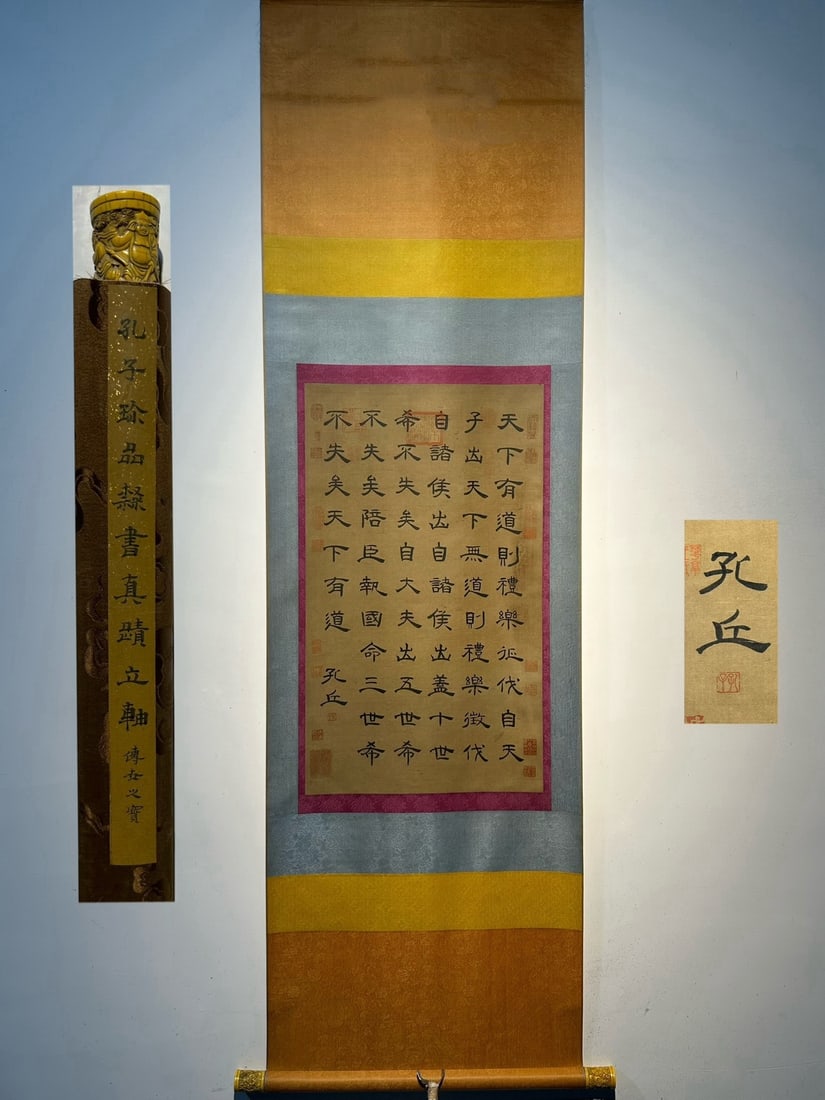 孔丘
天下有道則禮樂征伐自天
子出天下無道則禮樂徵伐
自諸侯出自諸侯出蓋十世
希不失矣自大夫出五世希
不失矣陪臣執國命三世希
不失矣天下有道 孔丘
孔子珍品隸書真蹟立軸 傳世之寶